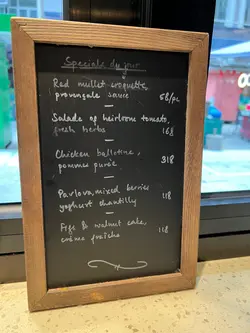 Specials du jour
Red mullet croquette,
provençale sauce
Salade of heirloom tomato,
fresh herbs
Chicken ballotine,
pommes purée
Pavlova, mixed berries
yoghurt chantilly
Figs & walnut cake,
crème fraîche